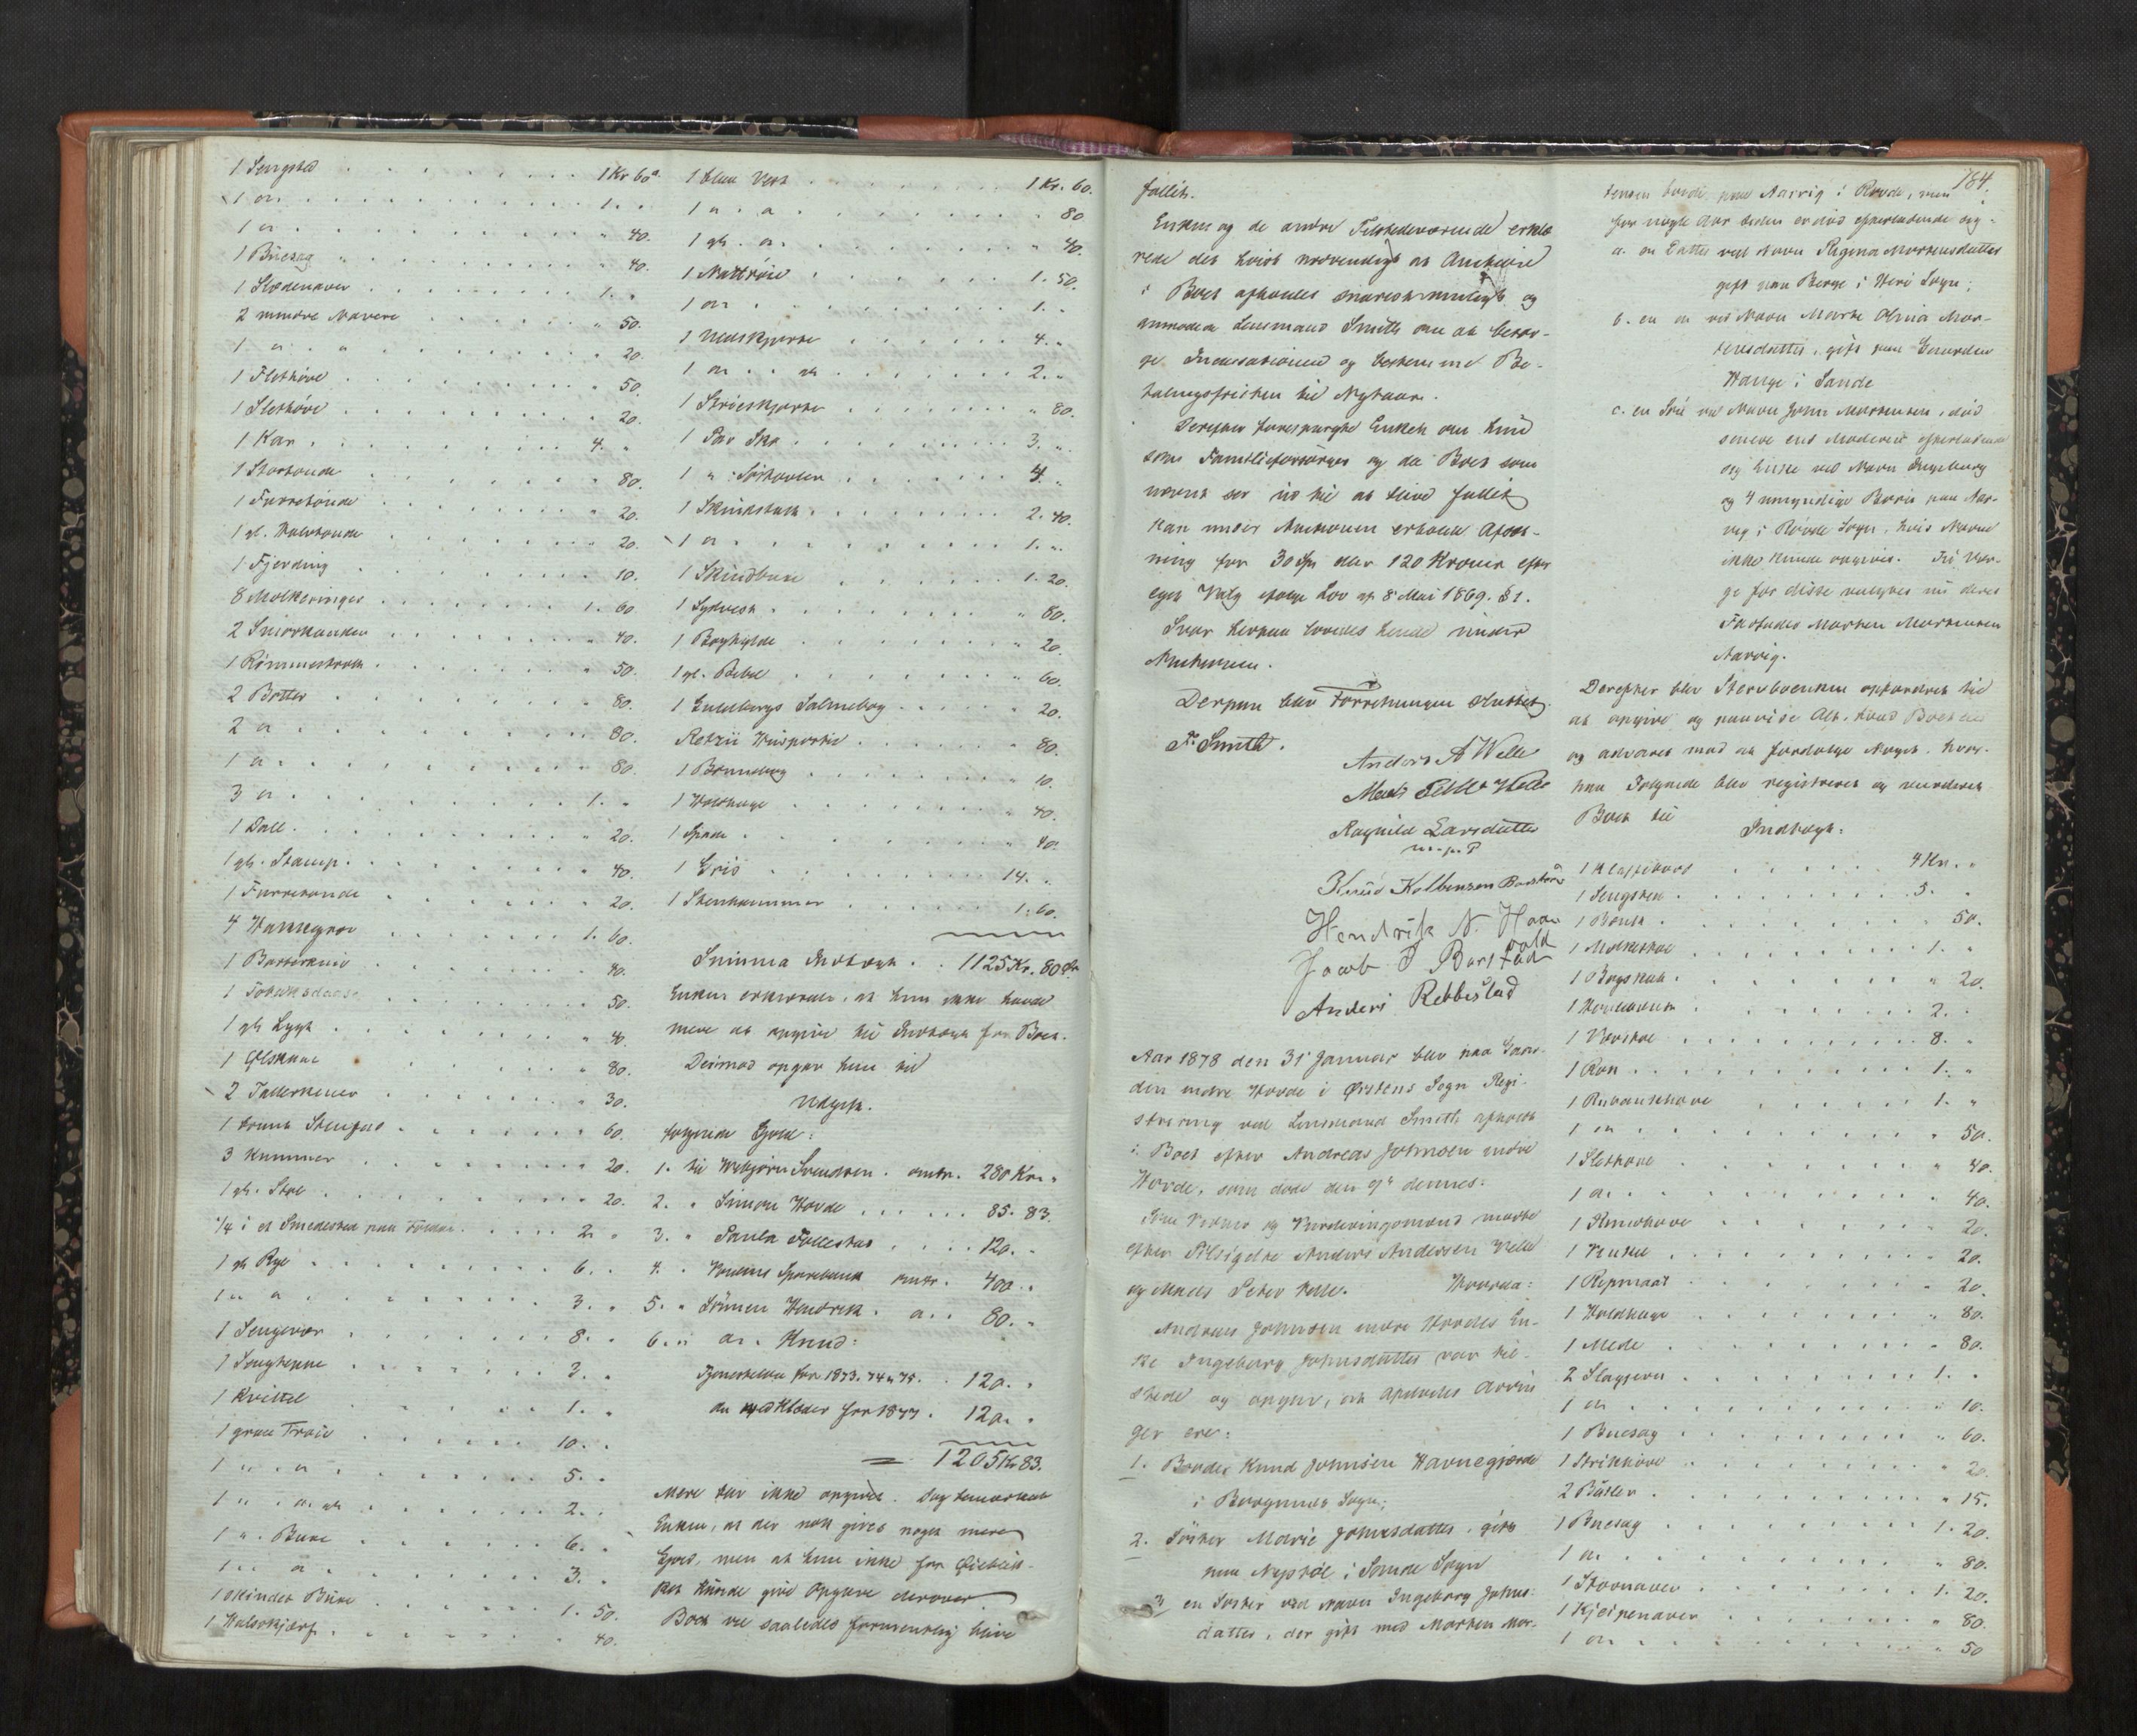 1 Sengsted . . . 1 Kr 60 ø
1 do . . . 1. "
1 do . . . " 40.
1 Buesag . . . " 40.
1 Slædenaver . . . 1. "
2 mindre Navere . . . " 50.
1 " . . . " 20.
1 Flethövl . . . 50.
1 Slethövl . . . 20.
1 Kar . . . 4. "
1 Stortønde . . . 80.
1 Furretønde . . . " 20.
1 gl. Halvtønde . . . " 20.
1 Fjerding . . . 10.
8 Melkeringer . . . 1. 60.
2 Smørkander . . . " 40.
1 Rømmestrok . . . " 50.
2 Bøtter . . . " 80.
2 do . . . 80.
1 do . . . 80.
3 do . . . 1. "
1 Dall . . . " 20.
1 gl. Stamp . . . " 40.
1 Furretønde . . . 20.
4 . . . 1. 60.
1 . . . 40.
1 Tobaksdaase . . . 50.
1 gl Lygt . . . " 40.
1 Ølskaal . . . " 80.
2 Tallerkener . . . " 30.
1 Stenfad . . . " 60.
3 Kummer . . . " 20.
1 gl. Stol . . . 20.
1/4 i et Smedested paa . . . 2. "
1 gl Rye . . . 6. "
1 " do . . . 3. "
1 Sengevær . . . 8. "
1 Sengteppe . . . 2. "
1 Kvittel . . . 1. "
1 graa Trøie . . . 10. "
1 " do . . . 5. "
1 " do gl . . . 2. "
1 " Buxe . . . 6. "
1 " do . . . 3. "
1 Skindet Buxe . . . 1. 50.
1 Halsskjærf . . . 40.
1 blaa Vest . . . 1 Kr. 60.
1 " do . . . " 80
1 gl. do . . . " 40.
1 Nattrøie . . . 1. 50.
1 do . . . 1. "
1 Uldskjorte . . . 4. "
1 do gl . . . 2. "
1 Strieskjorte . . . " 80.
1 Par Sko . . . 3. "
1 " Söstøvler . . . 4. "
1 Skindstak . . . 2. 40.
1 do . . . 1. "
1 Skindbuxe . . . 1. 20.
1 Sydvest . . . " 80.
1 Boghylde . . . " 20.
1 gl. Bibel . . . " 60.
1 Guldbergs Salmebog . . . " 20.
Rotzii Huspostil . . . " 80.
1 Bønnebog . . . " 10.
1 . . . " 40.
1 Spade . . . " 40.
1 Gris . . . 14. "
1 Stenhammer . . . 1. 60.
Summa Indtægt . . 1125 Kr. 80 Ør
Enken erklærede, at hun ikke havde
mere at opgive til Indtægt for Boet.
Derimod opgav hun til
Udgift.
følgende Gjæld:
1. til Vebjørn Svendsen . omtr. 280 Kr. "
2. " Simon Hovde . . . 85. 83.
3. " Paula Follestad . . . 120. "
4. " Voldens Sparebank omtr. 400. "
5. " Sønnen Hendrik . do . 80. "
6. " do . Knud:
Tjenesteløn for 1873. 74 o 75. . 120. "
do med Klæder for 1877 . 120. "
= 1205 Kr 83.
Mere blev ikke opgivet. Dog bemærkede
Enken, at der nok gives noget mere
Gjæld, men at hun ikke for Øieblik-
ket kunde give Opgave derover.
Boet vil saaledes formentlig blive
fallit.
Enken og de andre Tilstedeværende erklæ
rede det høist nødvendigt at Auktion
i Boet afholdes snarest muligt og
anmodede Lensmand Smith om at besør-
ge Inkassationen og bestemme Be-
talingsfristen til Nytaar.
Derefter forespurgtes Enken om hun
som Familieforsørger og da Boet som
nævnt ser ud til at blive fallit
kan under Auktionen erholde Afsæt-
ning for 30 Spd eller 120 Kroner efter
eget Valg ifølge Lov af 8 Mai 1869. § 1.
Svar herpaa lovedes hende under
Auktionen.
Derpaa blev Forretningen sluttet.
Fr. Smith.
Anders A Welle
Mads P Welle
Ragnild Larsdatter
m. p. P
Knud Kolbensen Barstad
Hendrik N. Haavold
Jacob J Barstad
Anders Rebbestad
Aar 1878 den 31 Januar blev paa Gaar-
den indre Hovde i Ørstens Sogn Regi-
strering ved Lensmand Smith afholdt
i Boet efter Andreas Johnsen indre
Hovde, som døde den 9de dennes.
Som Vidner og Vurderingsmænd mødte
efter Tilsigelse Anders Andersen Velle
og Mads Peter Velle. Hvorda:
Andreas Johnsen indre Hovdes En-
ke Ingeborg Johnsdatter var til-
stede og opgav, at Afdødes Arvin
ger ere:
1. Broder Knud Johnsen Havnegjærde
i Borgunds Sogn;
2. Søster Marie Johnsdatter, gift
paa Nystöl i Sande Sogn
3 en Søster ved Navn Ingeborg Johns-
datter, der gift med Morten Mor-
184.
tensen boede paa Aarvig i Rovde, men
for nogle Aar siden er død efterladende sig:
a. en Datter ved Navn Regina Mortensdatter
gift paa Berge i Herø Sogn;
b. en do ved Navn Marte Olina Mor-
tensdatter, gift paa Gaarden
Hauge i Sande
c. en Søn ved Navn John Mortensen, død
senere end Moderen efterladende
sig Enke ved Navn Ingeborg
og 4 umyndige Børn paa Aar-
vig i Rovde Sogn, hvis Navne
ikke kunde opgives. Til Vær-
ge for disse valgtes nu deres
Farfader Morten Mortensen
Aarvig.
Derefter blev Stervboenken opfordret til
at opgive og paavise Alt, hvad Boet eied
og advaret mod at fordølge Noget. Hvor-
paa Følgende blev registreret og vurderet
Boet til
Indtægt:
1 Klaffebord . . . 4 Kr. "
1 Sengsted . . . 5. "
1 Bænk . . . 50.
1 Melkestol . . . 1. "
1 Bogskab . . . " 20.
1 . . . 2. "
1 Vævstol . . . 8. "
1 Rok . . . 1. "
1 . . . 1. "
1 do . . . " 50.
1 Slethøvl . . . " 40.
1 do . . . " 40.
1 . . . " 20.
1 Vinkel . . . " 20.
1 Ripmaat . . . " 20.
1 . . . " 80.
1 Mede . . . " 80.
2 . . . 1. "
1 do . . . " 10.
1 Buesag . . . " 60.
1 Strikhövl . . . " 20.
2 . . . " 15.
1 Buesag . . . 1. 20.
1 do . . . " 80.
1 Stornaver . . . 1. 20.
1 Kjeipenaver . . . " 80.
1 do . . . " 50